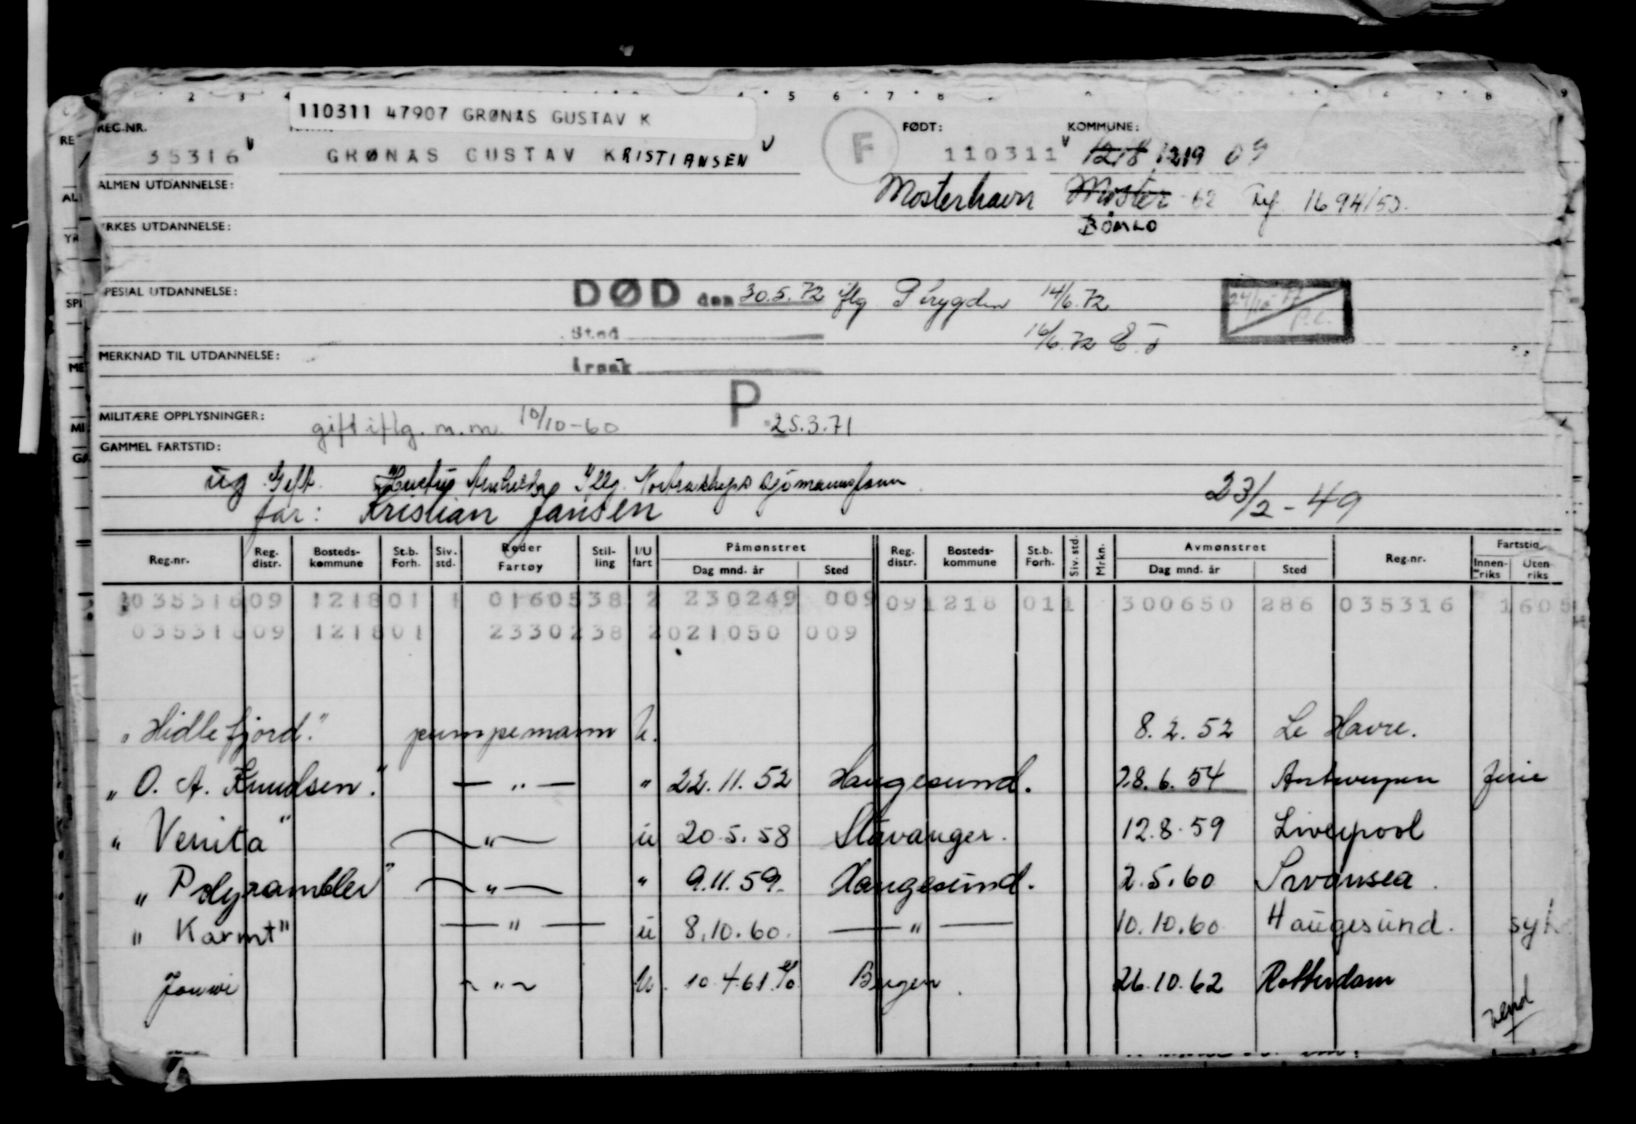 110311 47907 GRØNAS GUSTAV K
REG.NR. FØDT: KOMMUNE:
35316 GRØNAS GUSTAV KRISTIANSEN F 110311 1218 1219 09
ALMEN UTDANNELSE: Mosterhavn Moster 62
1694/53.
YRKES UTDANNELSE: BØMLO
SPESIAL UTDANNELSE: DØD den 30.5.72 iflg 14/6.72
Sted 16/6.72
MERKNAD TIL UTDANNELSE: Årsak
P
MILITÆRE OPPLYSNINGER: gift iflg. m.m. 10/10-60 25.3.71
GAMMEL FARTSTID:
ug Gift
far: Kristian Jansen 23/2-49
Reg.nr. Reg. distr. Bosteds- kommune St.b. Forh. Siv. std. Reder Fartøy Stil- ling I/U fart Påmønstret Dag mnd. år Sted Reg. distr. Bosteds- kommune St.b. Forh. Siv. std. Mrkn. Avmønstret Dag mnd. år Sted Reg.nr. Fartstid Innen- riks Uten- riks
035316 09 1218 01 1 0160538 2 230249 009 09 1218 01 1 300650 286 035316 1605
035316 09 1218 01 2330238 2 021050 009
"Hidlefjord." pumpemann U. 8.2.52 Le Havre.
" O. A. Knudsen." — " — " 22.11.52 Haugesund. 28.6.54 Antwerpen ferie
" Venita" — " — u 20.5.58 Stavanger. 12.8.59 Liverpool
" Polyrambler" — " — " 9.11.59. Haugesund. 2.5.60 Swansea.
" Karmt" — " — u 8.10.60. — " — 10.10.60 Haugesund. syk
— " — U. 10.4.61 Bergen. 26.10.62 Rotterdam
vend